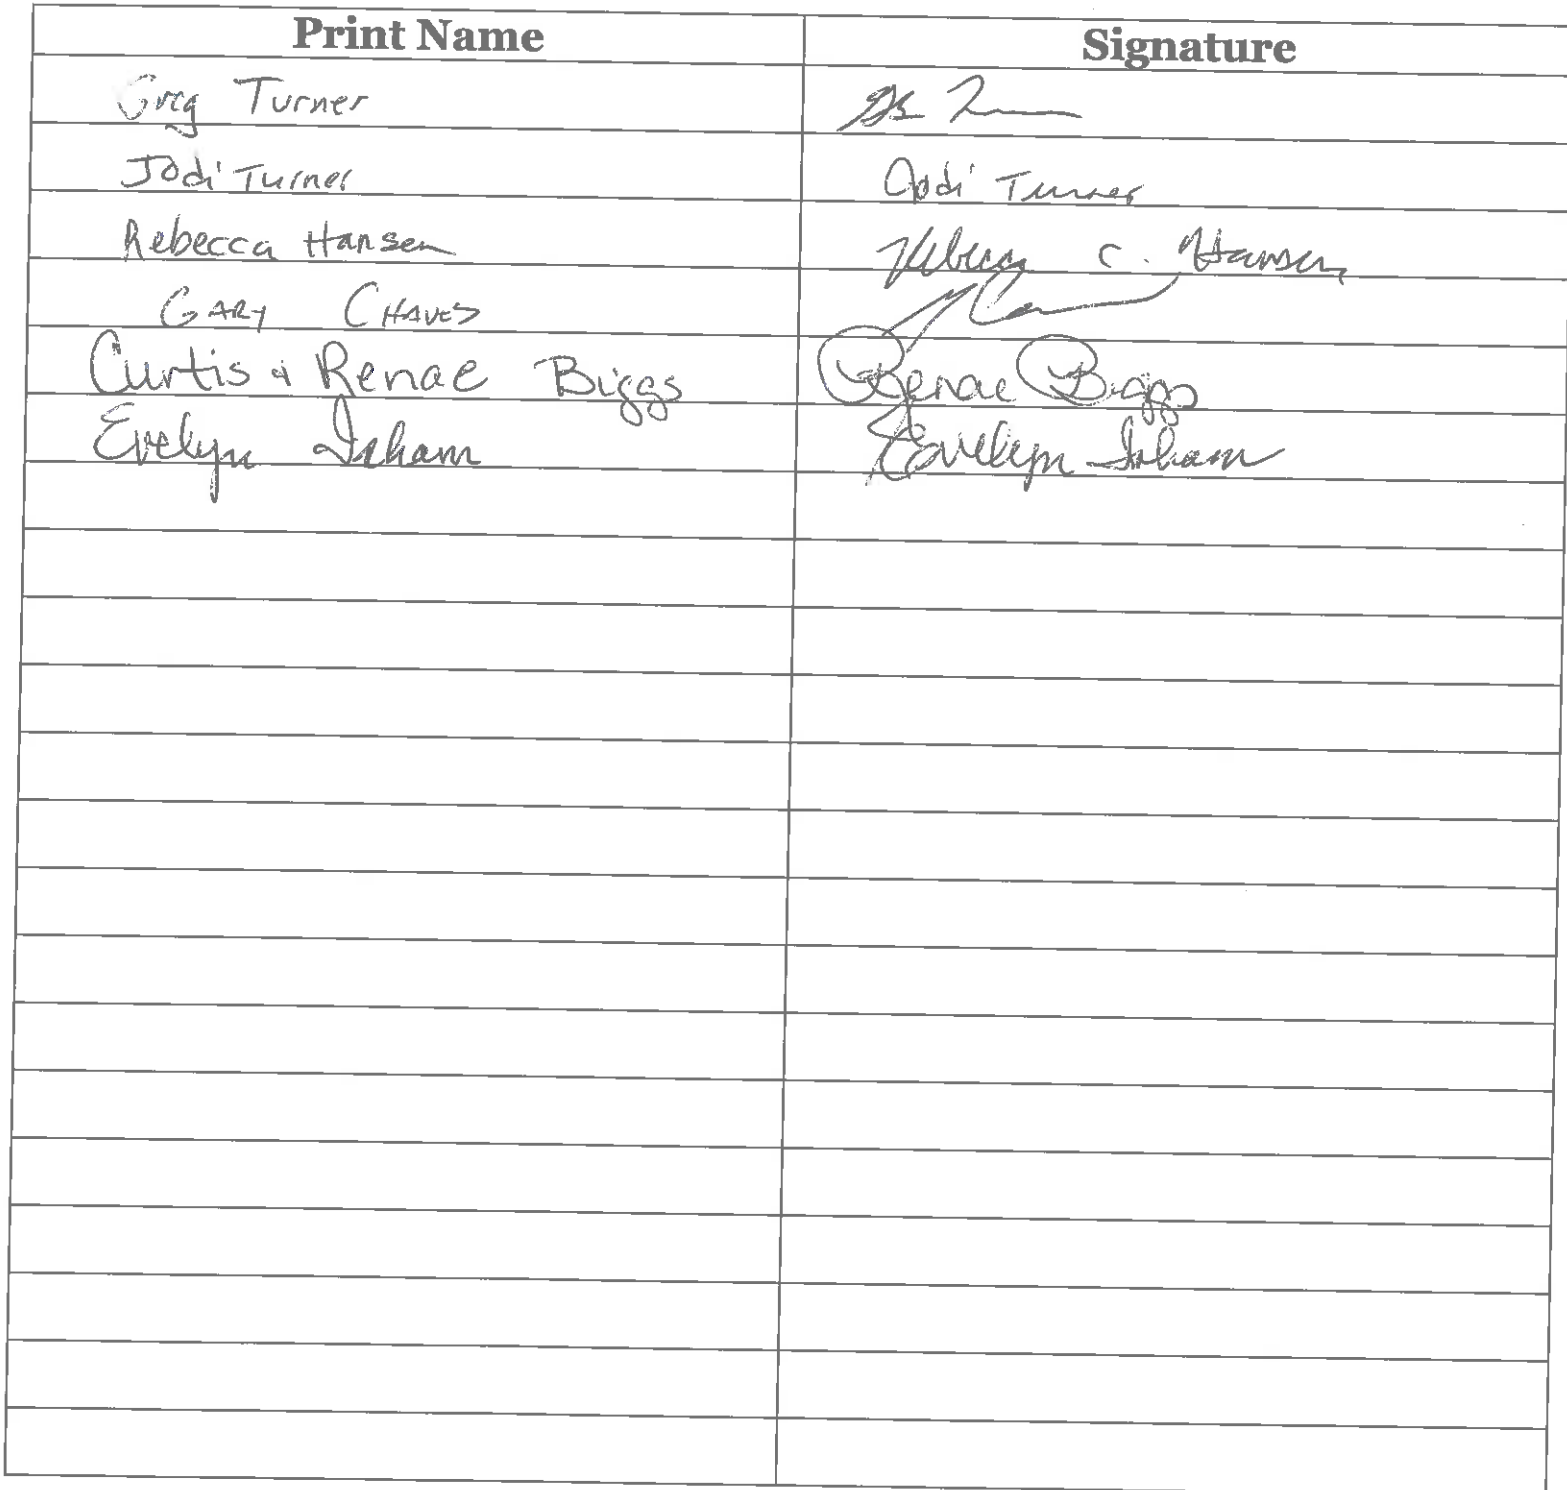 Print Name Signature
Greg Turner
Jodi Turner Jodi Turner
Rebecca Hansen Rebecca C. Hansen
GARY CHAVES
Curtis & Renae Biggs Renae Biggs
Evelyn Isham Evelyn Isham